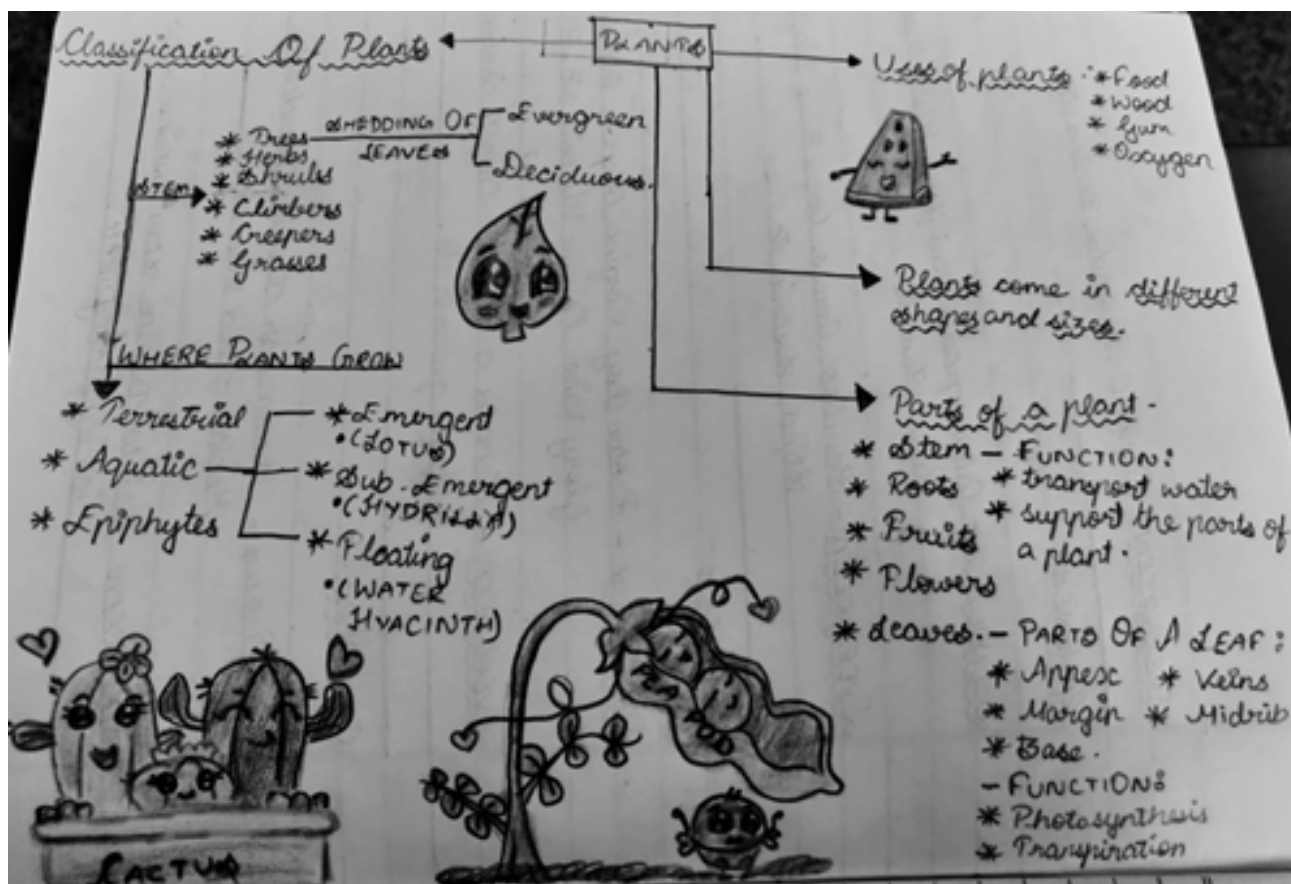 PLANTS
Classification Of Plants
STEM
* Trees
* Herbs
* Shrubs
* Climbers
* Creepers
* Grasses
SHEDDING OF
LEAVES
Evergreen
Deciduous.
WHERE PLANTS GROW
* Terrestrial
* Aquatic
* Epiphytes
* Emergent
• (LOTUS)
* Sub-Emergent
• (HYDRILLA)
* Floating
• (WATER
HYACINTH)
CACTUS
Uses of plants : * Food
* Wood
* Gum
* Oxygen
Plants come in different
shapes and sizes.
Parts of a plant -
* Stem – FUNCTION:
* transport water
* support the parts of
a plant.
* Roots
* Fruits
* Flowers
* Leaves. – PARTS OF A LEAF :
* Appex * Veins
* Margin * Midrib
* Base.
– FUNCTION:
* Photosynthesis
* Transpiration